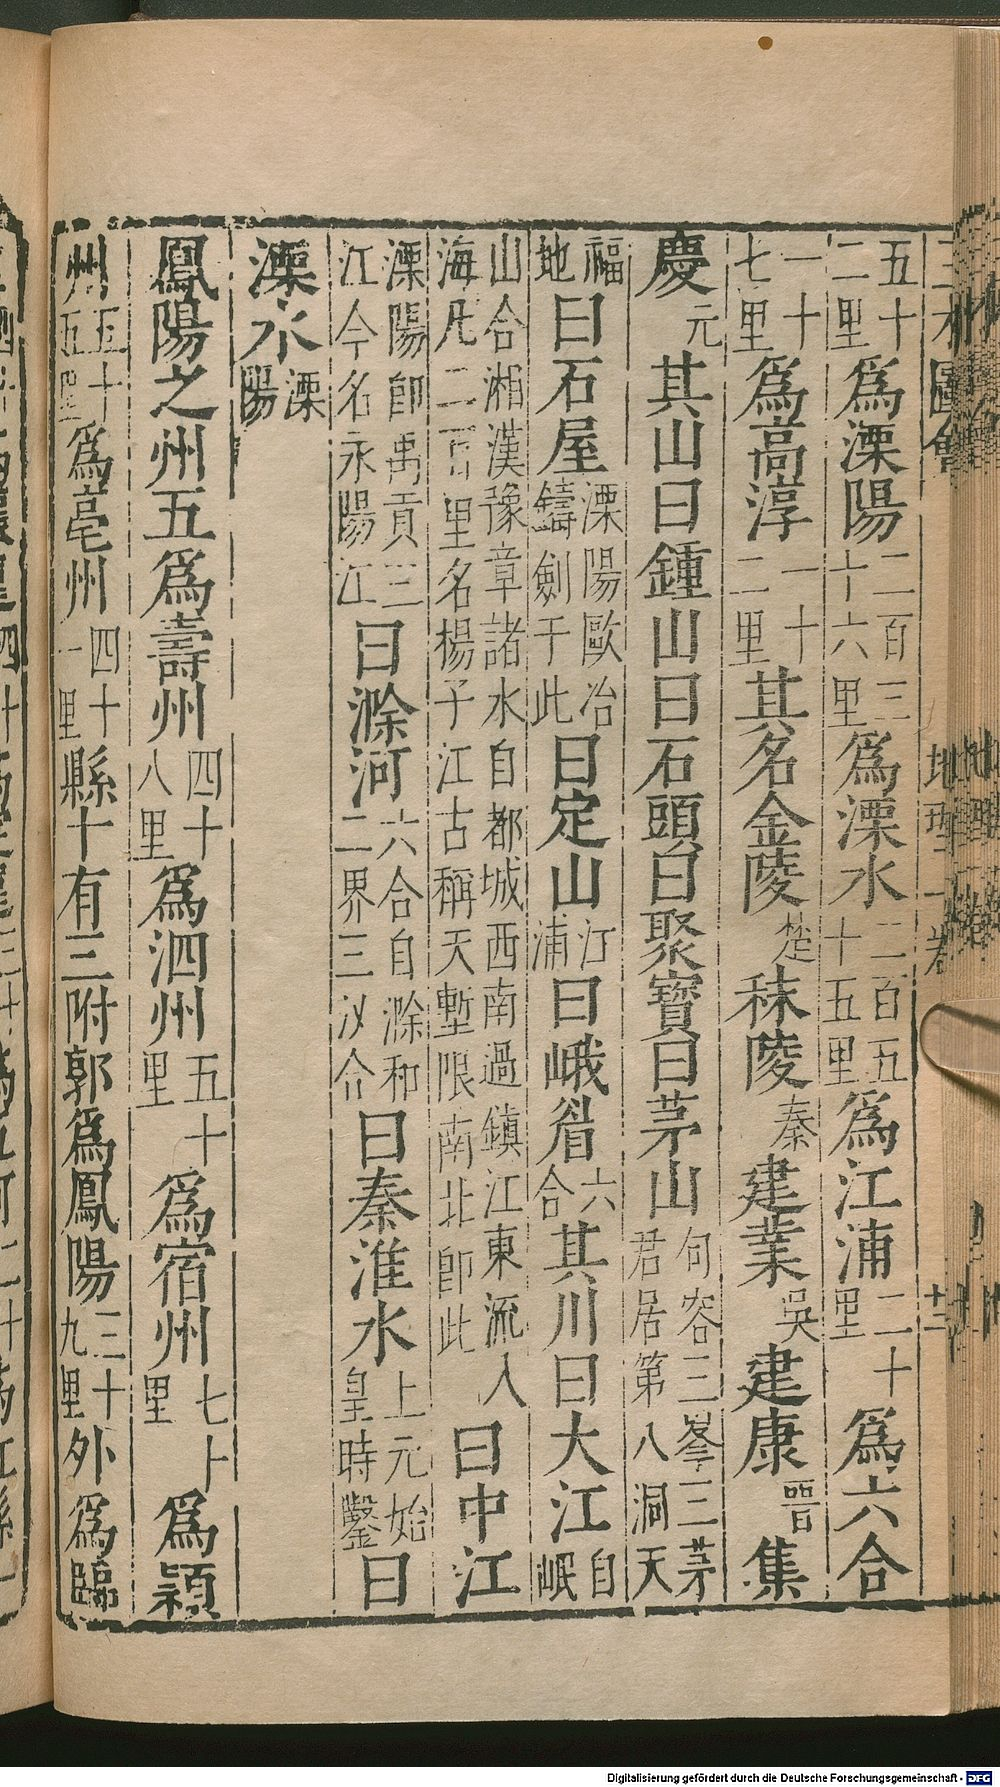 五十二里為溧陽二百三十六里為溧水二百五十五里為江浦二十里為六合
一十七里為高淳一十二里其名金陵楚秣陵秦建業吳建康晉集
慶元其山曰鍾山曰石頭曰聚寶曰茅山句容三峯三茅君居第八洞天
福地曰石屋溧陽歐冶鑄劍于此曰定山江浦曰峨眉六合其川曰大江自岷
山合湘漢豫章諸水自都城西南過鎮江東流入海凡二百里名楊子江古稱天塹限南北即此曰中江
溧陽即禹貢三江今名永陽江曰滁河六合自滁和二界三汊合曰秦淮水上元始皇時鑿曰
溧水溧陽
鳳陽之州五為壽州四十八里為泗州五十里為宿州七十里為潁
州五十五里為亳州四十一里縣十有三附郭為鳳陽三十九里外為臨
三才圖會
地理二卷
十二
Digitalisierung gefördert durch die Deutsche Forschungsgemeinschaft - DFG